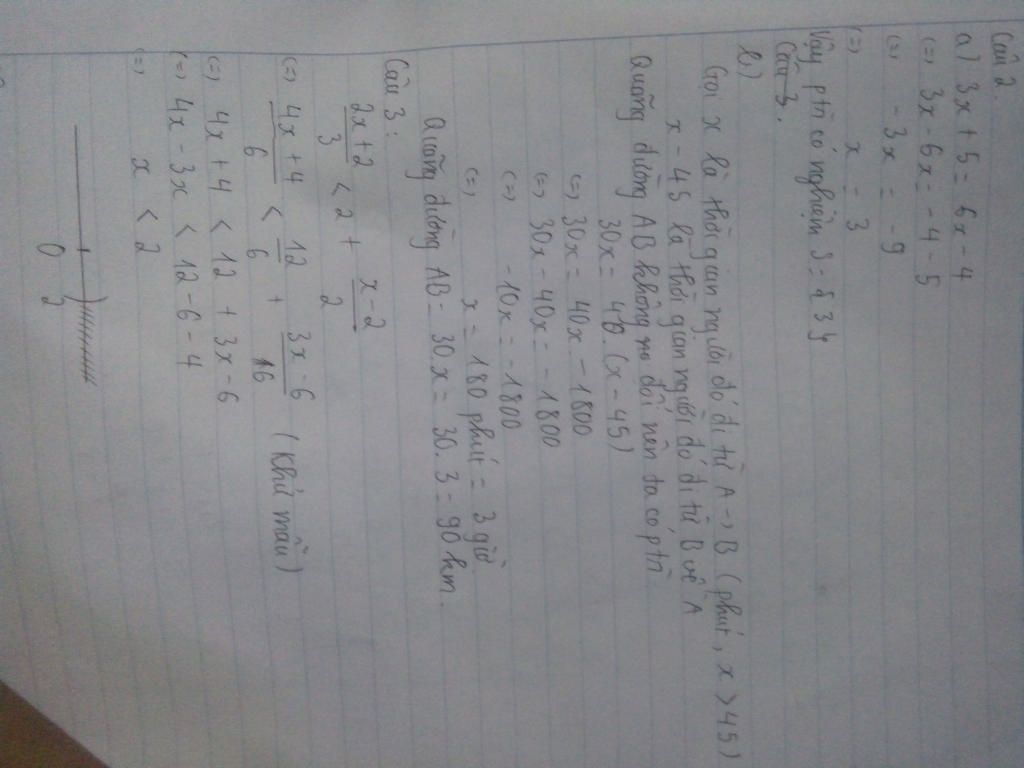 Câu 2.
a) 3x + 5 = 6x - 4
(=) 3x - 6x = - 4 - 5
(=) - 3x = - 9
(=) x = 3
Vậy ptr có nghiệm S = { 3 }
Câu 3.
b.) Gọi x là thời gian người đó đi từ A -> B (phút, x > 45)
x - 45 là thời gian người đó đi từ B về A
Quãng đường AB không thay đổi nên ta có ptr
30x = 40.(x - 45)
(=) 30x = 40x - 1800
(=) 30x - 40x = - 1800
(=) -10x = - 1800
(=) x = 180 phút = 3 giờ
Quãng đường AB = 30.x = 30.3 = 90 km.
Câu 3:
2x+2/3 < 2 + x-2/2
(=) 4x+4/6 < 12/6 + 3x-6/6 (khử mẫu)
(=) 4x + 4 < 12 + 3x - 6
(=) 4x - 3x < 12 - 6 - 4
(=) x < 2
0 2